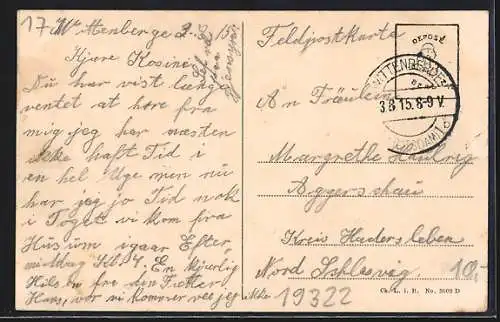 17
Wittenberge 2. 8. 15.
Kjære Kosine
Du har vist længe
ventet at høre fra
mig jeg har næsten
ikke haft Tid i
en hel Uge men nu
har jeg jo Tid nok
i Toget vi kom fra
Husum igaar Efter
middag Kl. 4. En kjærlig
Hilsen fra den Fætter
Hans, vor vi kommer ved jeg ikke
Feldpostkarte
DEPOSÉ
WITTENBERGE
3.8.15.8-9V.
(POTSDAM)
An Fräulein
Margrethe
Aggerschau
Kreis Hadersleben
Nord Schleswig
10,-
19322
Ch. L. i. B. No. 3009 D